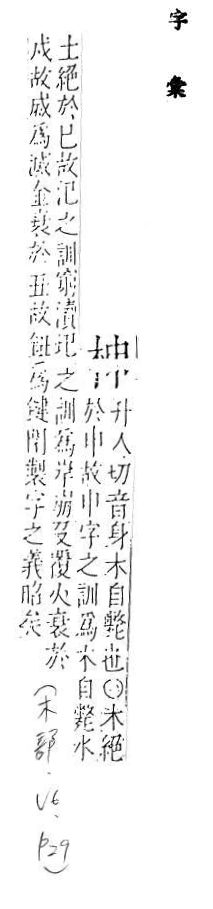 字彙
柛 升人切音身木自斃也○木絕
於申故申字之訓爲木自斃水
土絕於巳故汜之訓窮瀆圯之訓爲岸崩及覆火衰於
戌故烕爲滅金衰於丑故鈕爲鍵閉製字之義昭矣
(木部、V6、P29)